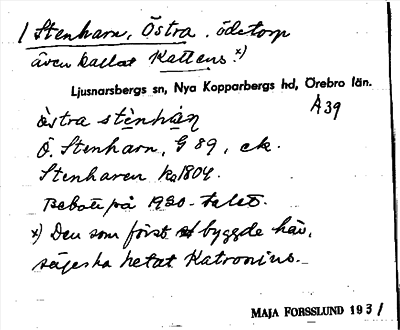 / Stenharn, Östra. ödetorp
även kallat Kattens x)
Ljusnarsbergs sn, Nya Kopparbergs hd, Örebro län.
A 39
östra stènhàn
Ö. Stenharn, G 89, ek.
Stenharen Ka 1804.
Bebott på 1920-talet.
x) Den som först byggde här,
säges ha hetat Katronius.
MAJA FORSSLUND 1931